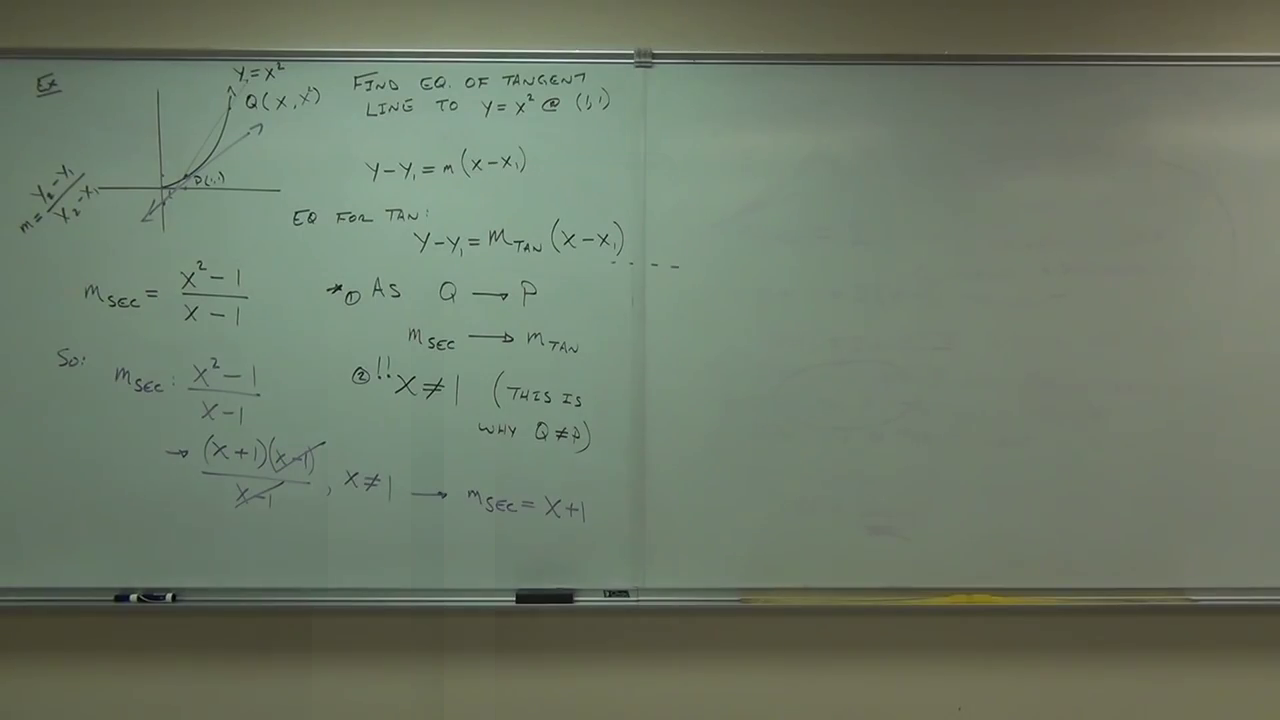 Ex
Y₁ = X²
Q(X, X²)
P(1,1)
m = Y₂ - Y₁ / X₂ - X₁
FIND EQ. OF TANGENT
LINE TO Y = X² @ (1,1)
Y - Y₁ = m(X - X₁)
EQ FOR TAN:
Y - Y₁ = m_TAN (X - X₁)
m_SEC = X² - 1 / X - 1
* ① AS Q → P
m_SEC → m_TAN
② !! X ≠ 1 (THIS IS
WHY Q ≠ P)
SO: m_SEC : X² - 1 / X - 1
→ (X + 1)(X - 1) / X - 1 , X ≠ 1 → m_SEC = X + 1